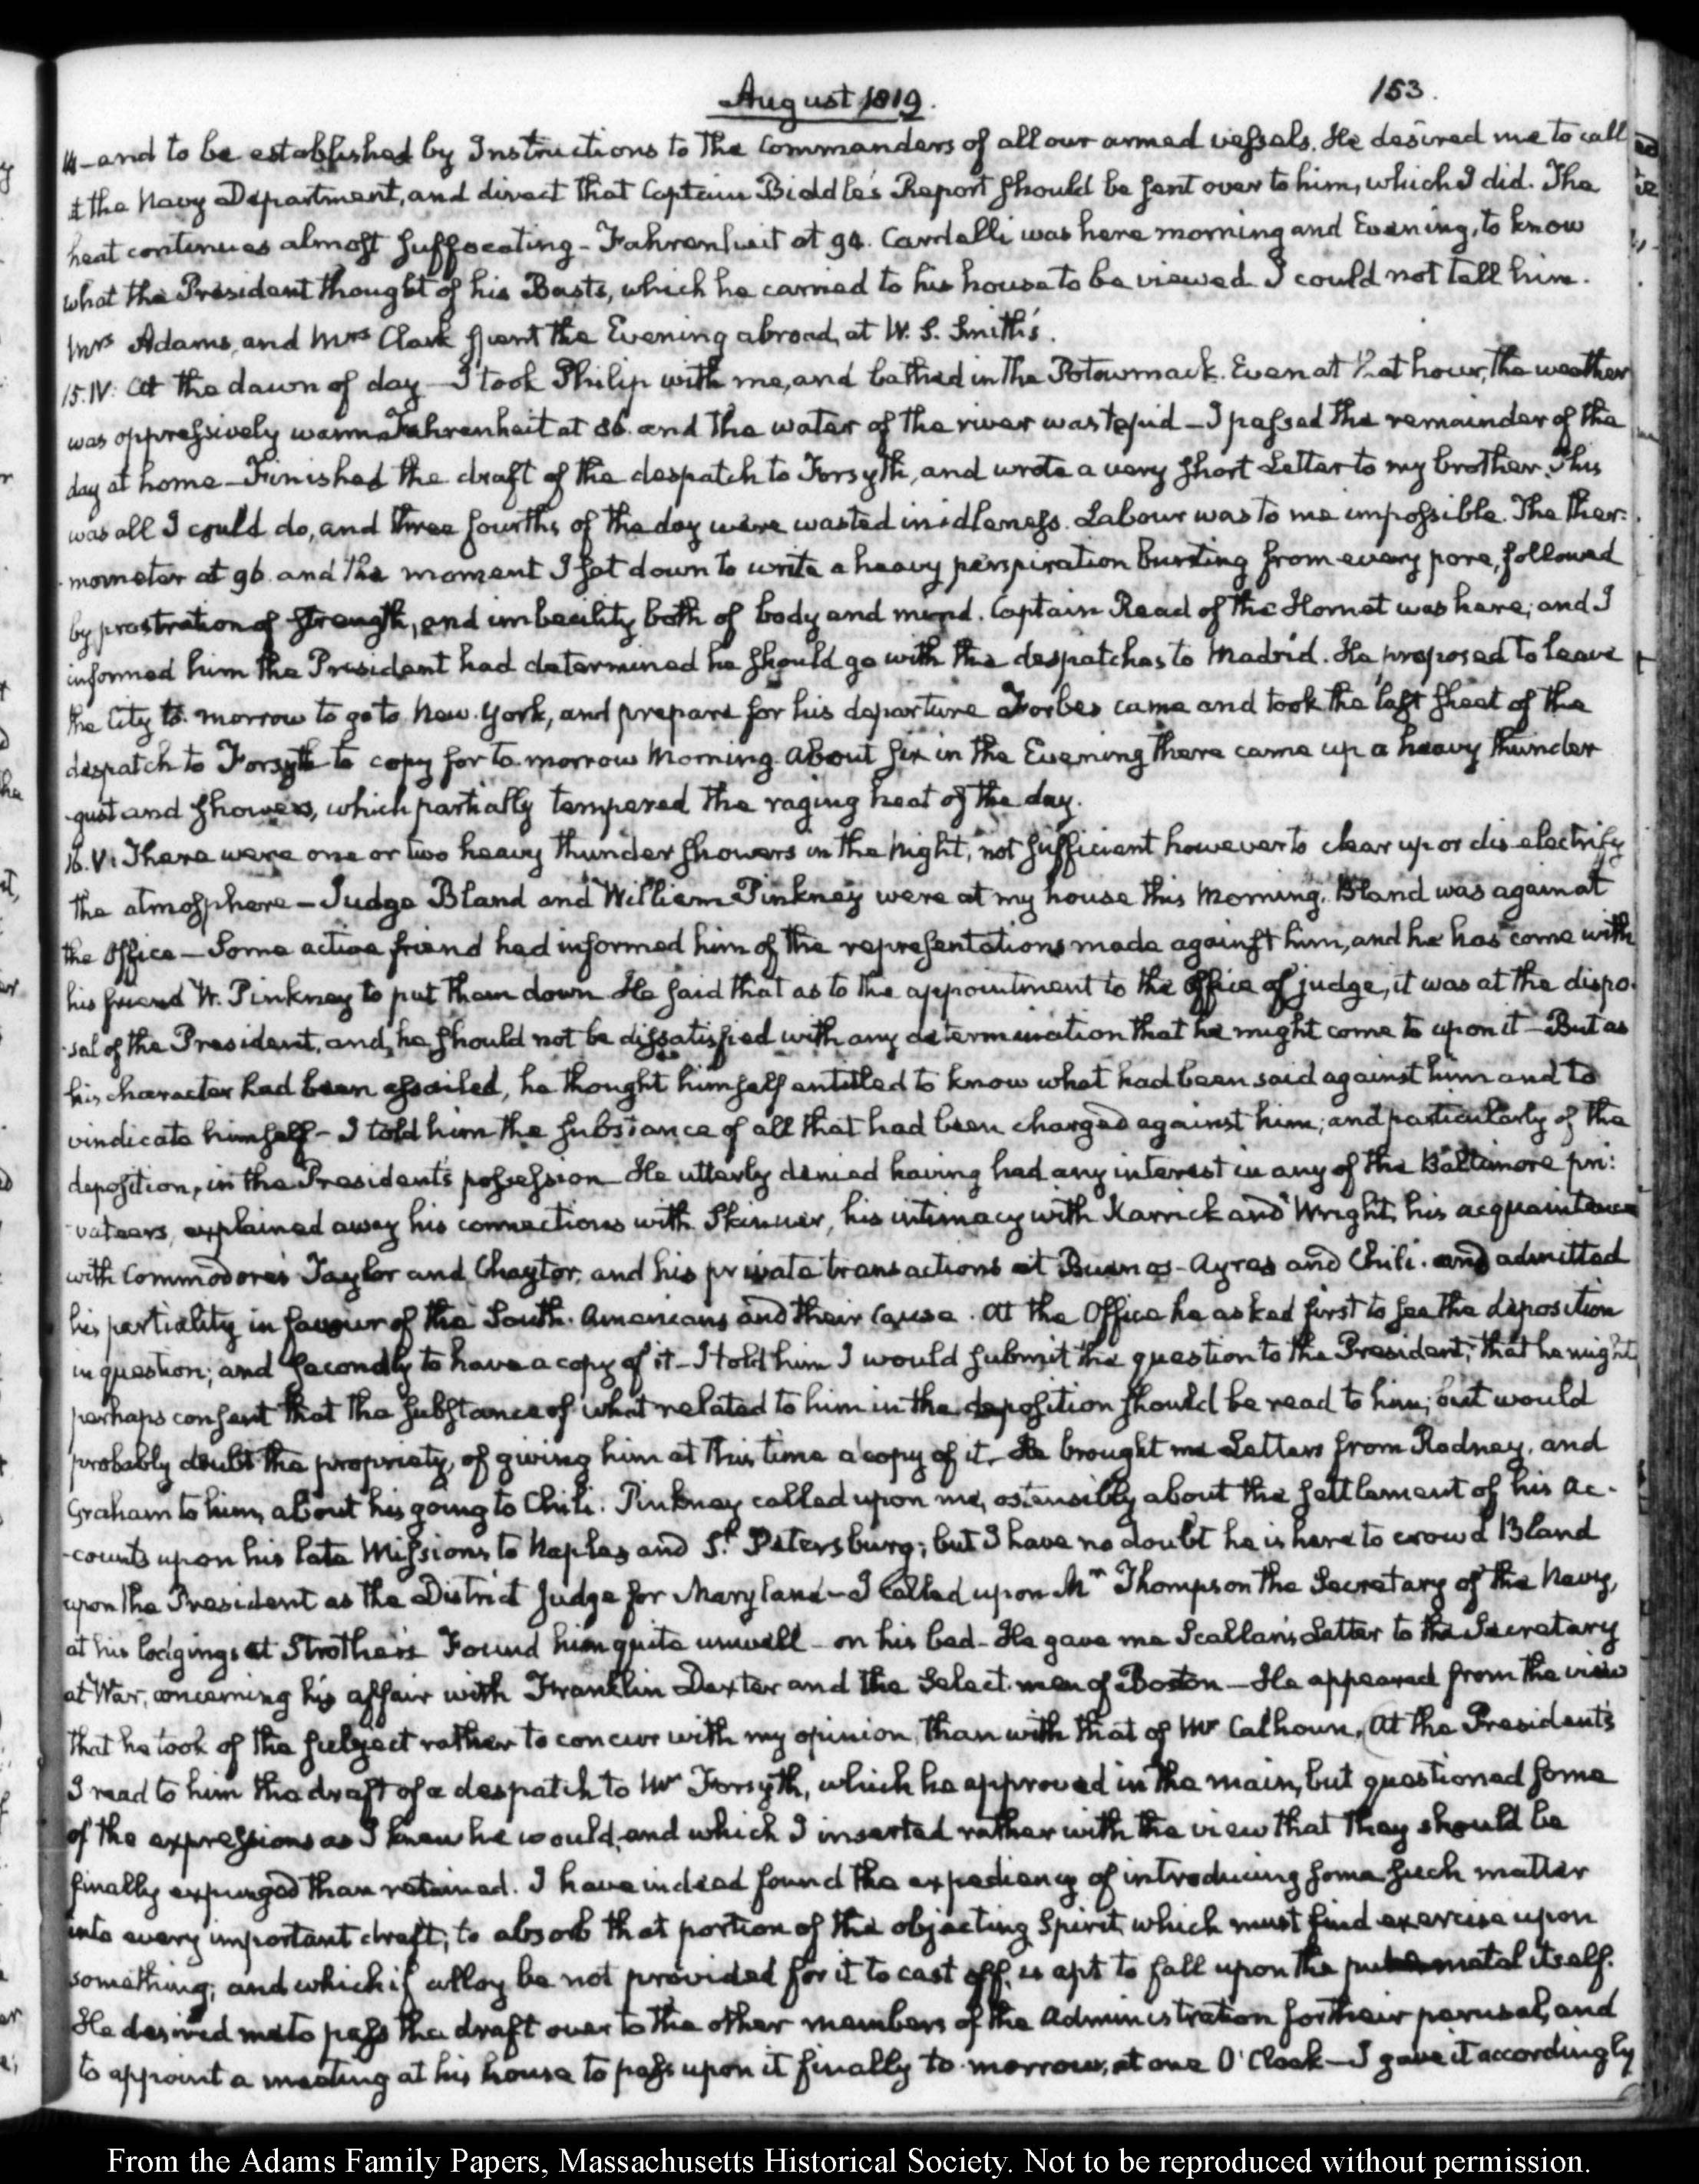 August 1819.
153.
—and to be established by Instructions to the Commanders of all our armed vessels. He desired me to call
at the Navy Department, and direct that Captain Biddle's Report should be sent over to him, which I did. The
heat continues almost suffocating - Fahrenheit at 94. Cardelli was here morning and Evening, to know
what the President thought of his Busts, which he carried to his house to be viewed. I could not tell him.
Mrs Adams, and Mrs Clark spent the Evening abroad, at W. S. Smith's.
15. IV: At the dawn of day — I took Philip with me, and bathed in the Potowmack. Even at that hour, the weather
was oppressively warm Fahrenheit at 86. and the water of the river was tepid — I passed the remainder of the
day at home — Finished the draft of the despatch to Forsyth, and wrote a very short Letter to my brother. This
was all I could do, and three fourths of the day were wasted in idleness. Labour was to me impossible. The ther:
mometer at 96. and the moment I set down to write a heavy perspiration bursting from every pore, followed
by prostration of strength, and imbecility both of body and mind. Captain Read of the Hornet was here; and I
informed him the President had determined he should go with the despatches to Madrid. He proposed to leave
the City to-morrow to go to New-York, and prepare for his departure Forbes came and took the last sheet of the
despatch to Forsyth to copy for to-morrow Morning. About six in the Evening there came up a heavy thunder
gust and showers, which partially tempered the raging heat of the day.
16. V: There were one or two heavy thunder showers in the Night, not sufficient however to clear up or dis-electrify
the atmosphere — Judge Bland and William Pinkney were at my house this Morning. Bland was again at
the Office — Some active friend had informed him of the representations made against him, and he has come with
his friend W. Pinkney to put them down He said that as to the appointment to the Office of judge, it was at the dispo-
-sal of the President, and he should not be dissatisfied with any determination that he might come to upon it — But as
his character had been assailed, he thought himself entitled to know what had been said against him and to
vindicate himself - I told him the substance of all that had been charged against him; and particularly of the
deposition, in the President's possession — He utterly denied having had any interest in any of the Baltimore pri:
vateers, explained away his connections with Skinner, his intimacy with Karrick and Wright, his acquaintance
with Commodores Taylor and Chaytor, and his private transactions at Buenos-Ayres and Chili. and admitted
his partiality in favour of the South-Americans and their Cause. At the Office he asked first to see the deposition
in question; and secondly to have a copy of it — I told him I would submit the question to the President; that he might
perhaps consent that the substance of what related to him in the deposition should be read to him; but would
probably doubt the propriety, of giving him at this time a copy of it. He brought me Letters from Rodney, and
Graham to him, about his going to Chili. Pinkney called upon me, ostensibly about the settlement of his Ac-
-counts upon his late Missions to Naples and St. Petersburg; but I have no doubt he is here to crowd Bland
upon the President as the District Judge for Maryland — I called upon Mr Thompson the Secretary of the Navy,
at his lodgings at Strother's Found him quite unwell — on his bed — He gave me Scallan's Letter to the Secretary
at War, concerning his affair with Franklin Dexter and the Select-men of Boston — He appeared from the view
that he took of the subject rather to concur with my opinion, than with that of Mr Calhoun. (At the President's
I read to him the draft of a despatch to Mr Forsyth, which he approved in the main, but questioned some
of the expressions as I knew he would, and which I inserted rather with the view that they should be
finally expunged than retained. I have indeed found the expediency of introducing some such matter
into every important draft; to absorb that portion of the objecting Spirit which must find exercise upon
something; and which if alloy be not provided for it to cast off, is apt to fall upon the pure metal itself.
He desired me to pass the draft over to the other members of the Administration for their perusal, and
to appoint a meeting at his house to pass upon it finally to-morrow, at one O'Clock — I gave it accordingly
From the Adams Family Papers, Massachusetts Historical Society. Not to be reproduced without permission.